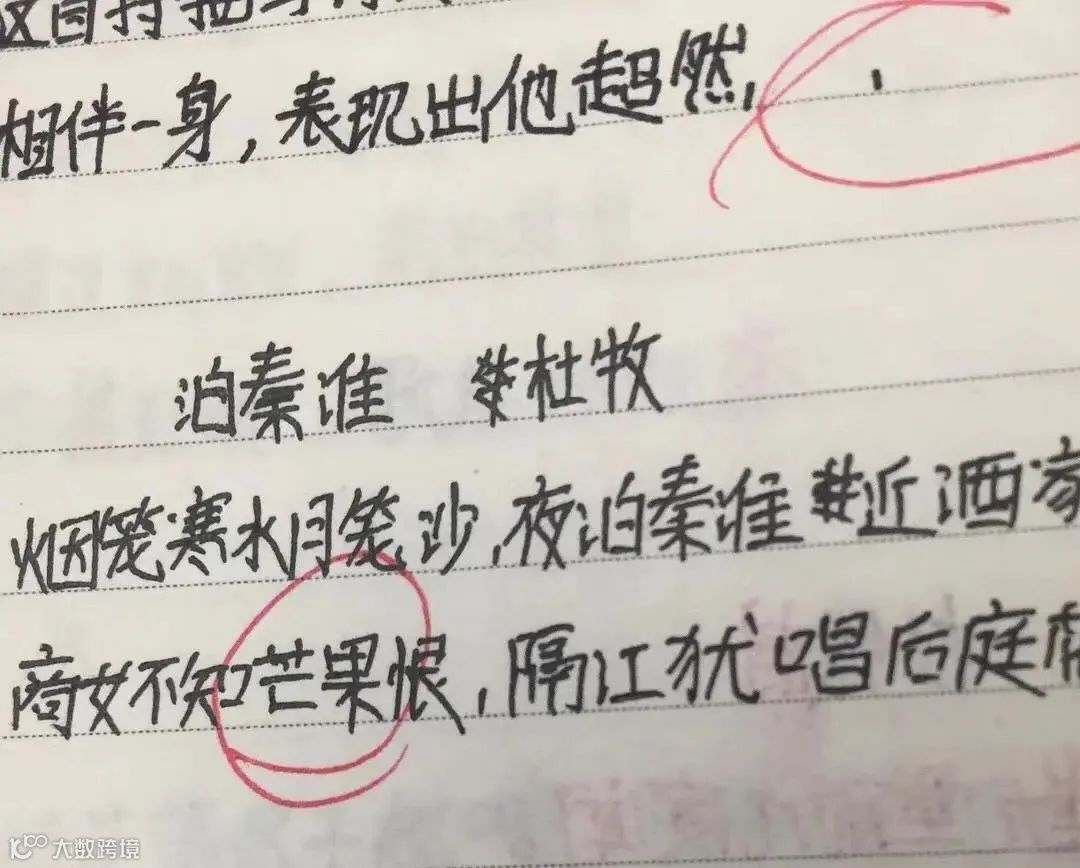 相伴一身，表现出他超然，
泊秦淮 杜牧
烟笼寒水月笼沙，夜泊秦淮近酒家
商女不知芒果恨，隔江犹唱后庭
大数跨境